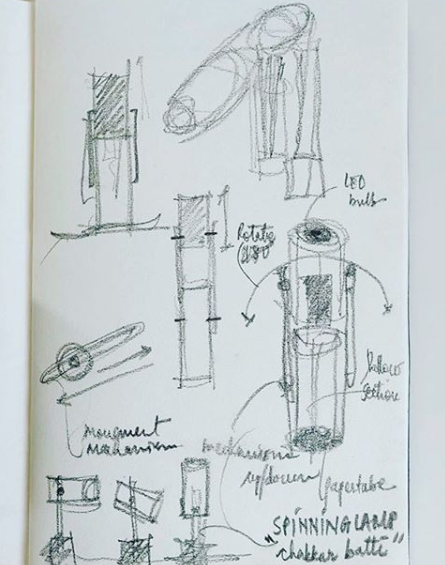 LED
bulb
Rotate
180
Hollow
section
movement
mechanism
mechanism
up/down
papertube
"SPINNING LAMP
chakkar batti"